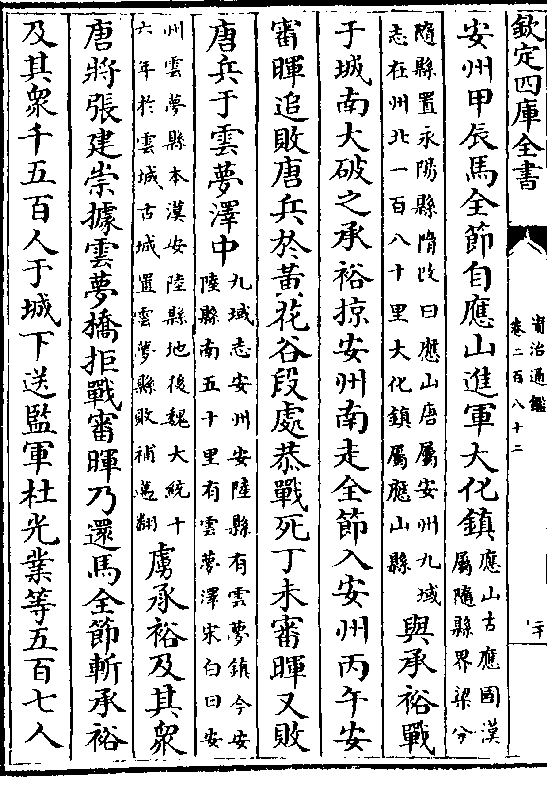 欽定四庫全書
資治通鑑
卷二百八十二
二十
安州甲辰馬全節自應山進軍大化鎮
應山古應國漢
屬隨縣界梁分
隨縣置永陽縣隋改曰應山唐屬安州九域
志在州北一百八十里大化鎮屬應山縣
與承裕戰
于城南大破之承裕掠安州南走全節入安州丙午安
審暉追敗唐兵於黃花谷段處恭戰死丁未審暉又敗
唐兵于雲夢澤中
九域志安州安陸縣有雲夢鎮今安
陸縣南五十里有雲夢澤宋白曰安
州雲夢縣本漢安陸縣地後魏大統十
六年於雲城古城置雲夢縣敗補邁翻
虜承裕及其衆
唐將張建崇據雲夢橋拒戰審暉乃還馬全節斬承裕
及其衆千五百人于城下送監軍杜光業等五百七人